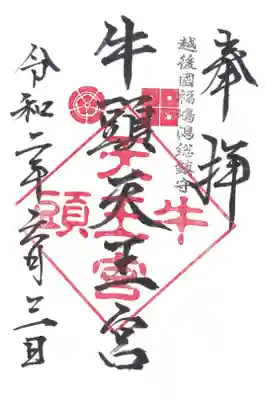 奉拝
越後國福嶋潟総鎮守
牛頭天王宮
牛頭天王宮
令和二年六月日